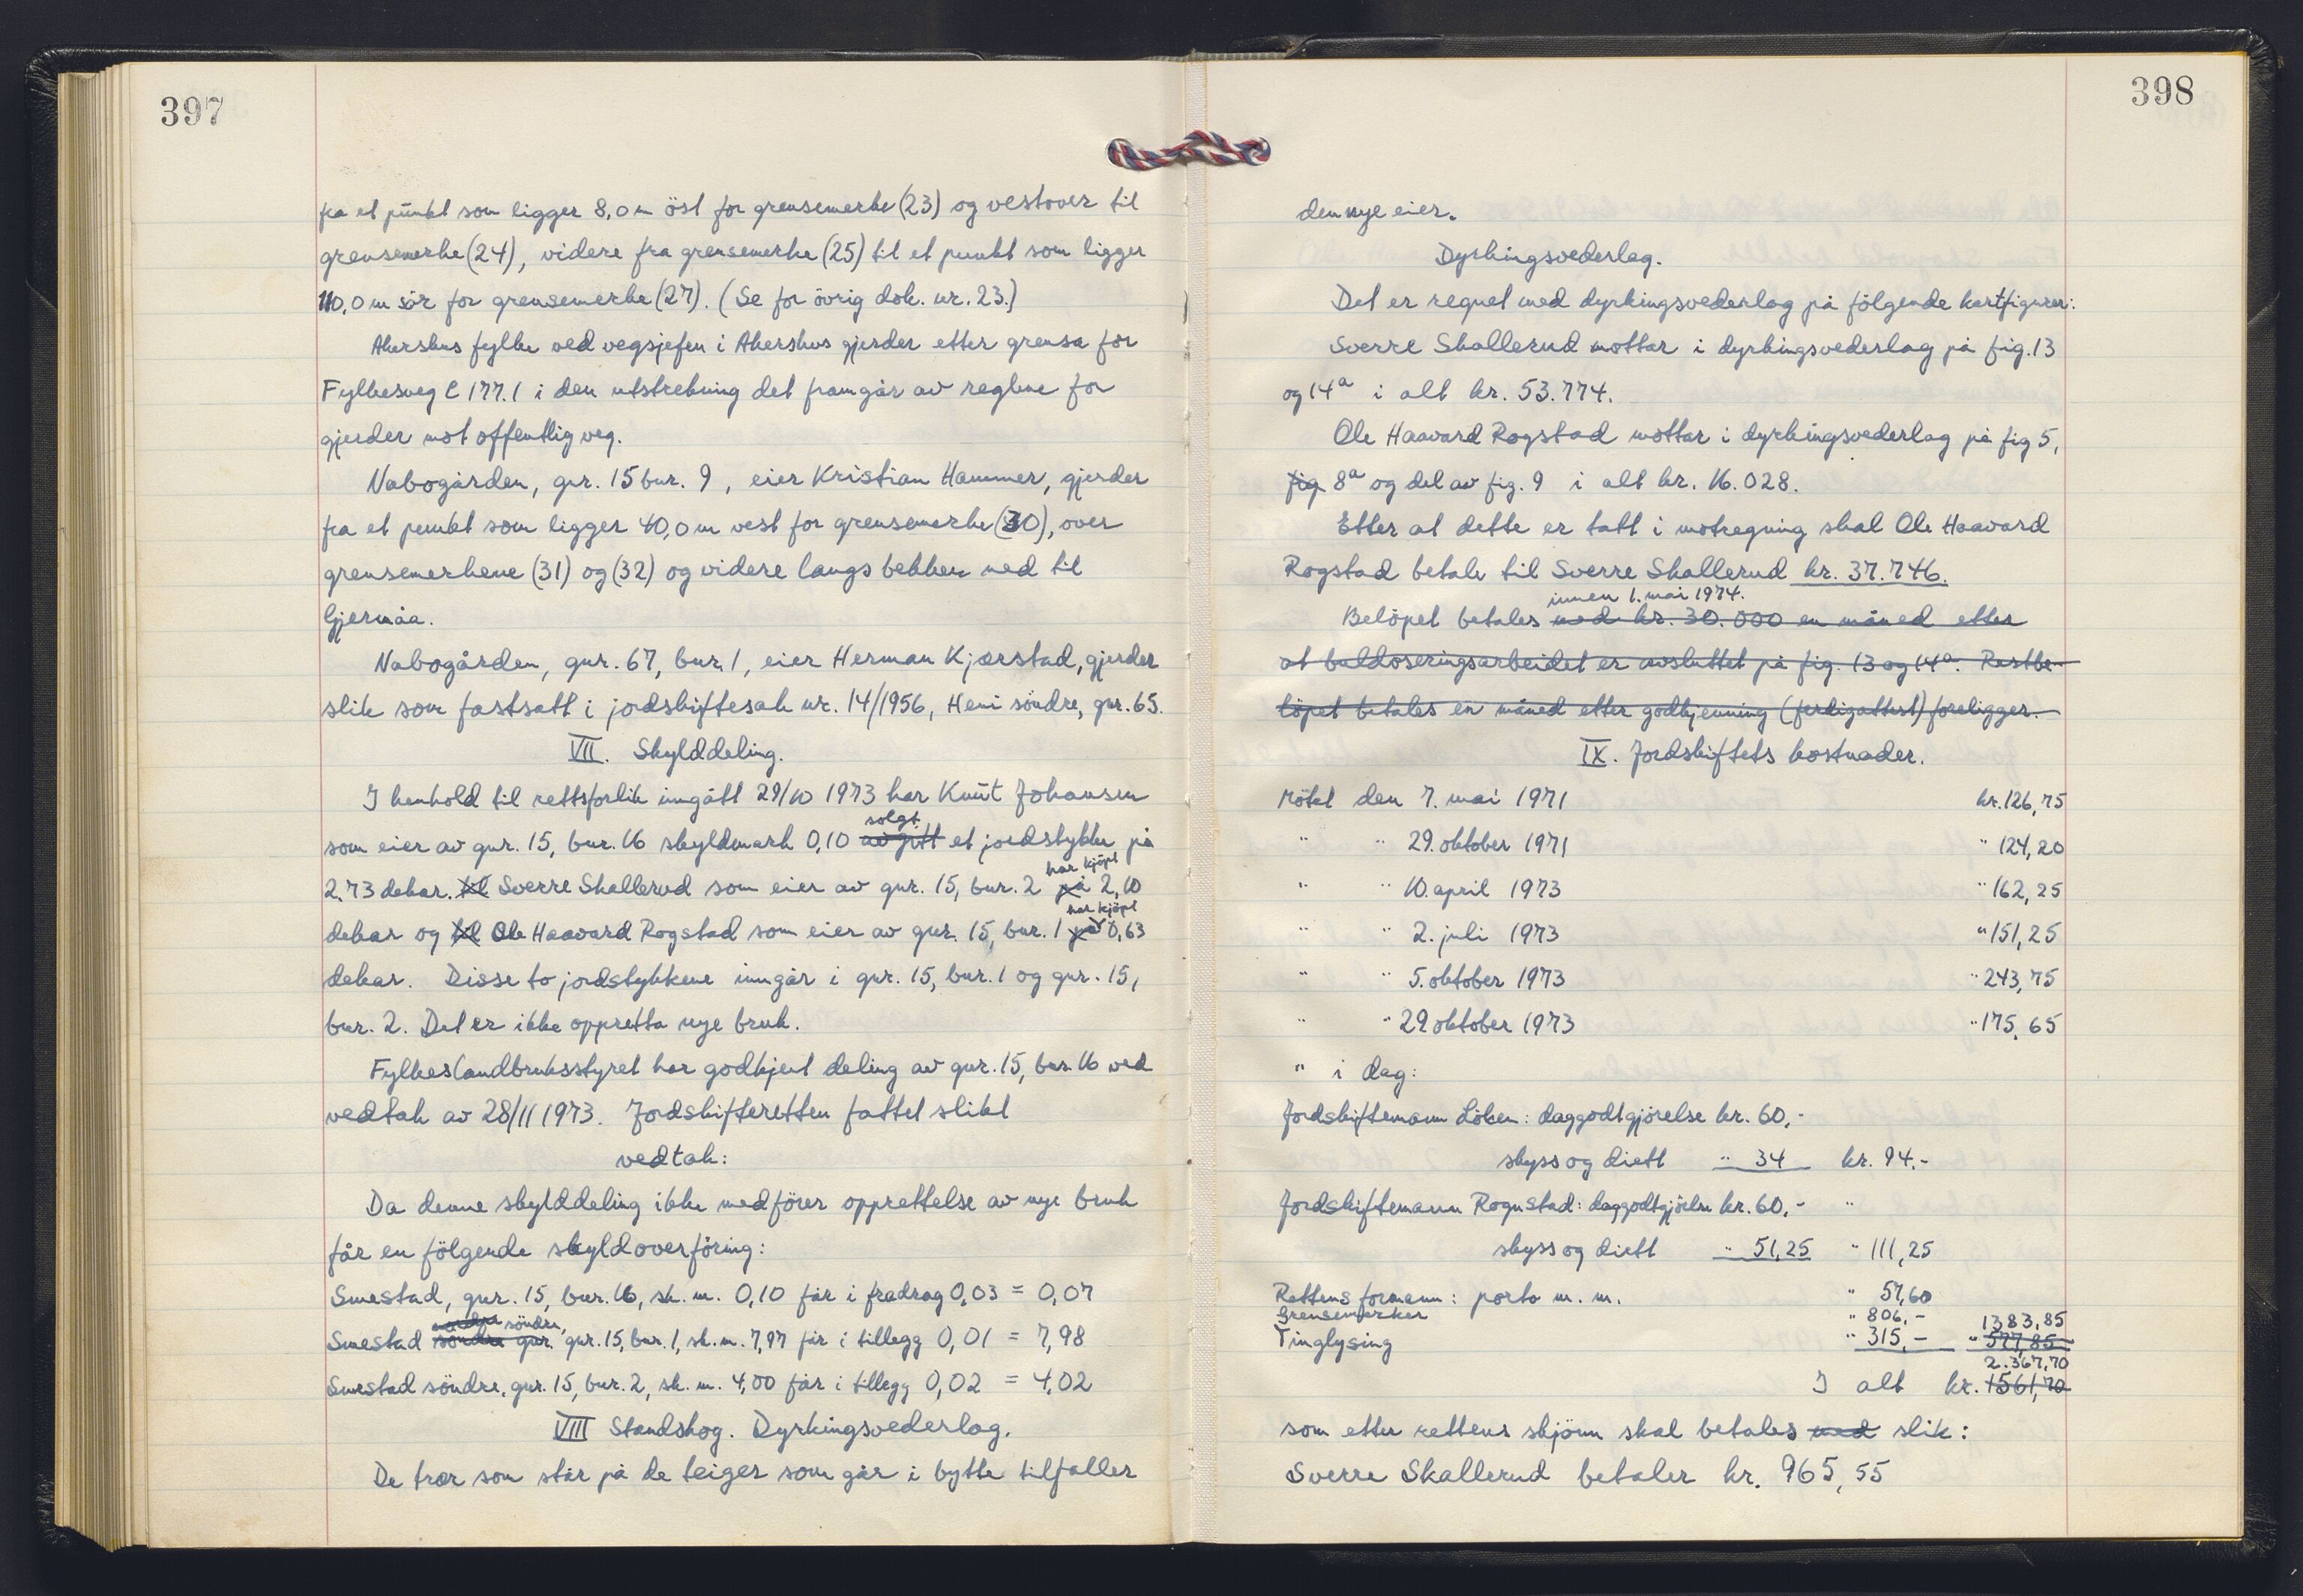 397
fra et punkt som ligger 8,0 m öst for grensemerke (23) og vestover til
grensemerke (24), videre fra grensemerke (25) til et punkt som ligger
110,0 m sör for grensemerke (27). (Se for övrig dok. nr. 23.)
Akershus fylke ved vegsjefen i Akershus gjerder etter grensa for
Fylkesveg C 177.1 i den utstrekning det framgår av reglene for
gjerder mot offentlig veg.
Nabogården, gnr. 15 bnr. 9, eier Kristian Hammer, gjerder
fra et punkt som ligger 40,0 m vest for grensemerke (30), over
grensemerkene (31) og (32) og videre langs bekken ned til
Gjermåa.
Nabogården, gnr. 67, bnr. 1, eier Herman Kjærstad, gjerder
slik som fastsatt i jordskiftesak nr. 14/1956, Heni söndre, gnr. 65.
VII. Skylddeling.
I henhold til rettsforlik inngått 29/10 1973 har Knut Johansen
solgt
som eier av gnr. 15, bnr. 16 skyldmark 0,10 avgitt et jordstykke på
har kjöpt
2,73 dekar. til Sverre Skallerud som eier av gnr. 15, bnr. 2 på 2,10
har kjöpt
dekar og til Ole Haavard Rogstad som eier av gnr. 15, bnr. 1 på 0,63
dekar. Disse to jordstykkene inngår i gnr. 15, bnr. 1 og gnr. 15,
bnr. 2. Det er ikke oppretta nye bruk.
Fylkeslandbruksstyret har godkjent deling av gnr. 15, bnr. 16 ved
vedtak av 28/11 1973. Jordskifteretten fattet slikt
vedtak:
Da denne skylddeling ikke medförer opprettelse av nye bruk
får en fölgende skyldoverföring:
Smestad, gnr. 15, bnr. 16, sk. m. 0,10 får i fradrag 0,03 = 0,07
nordre söndre,
Smestad söndre gnr. gnr. 15, bnr. 1, sk. m. 7,97 får i tillegg 0,01 = 7,98
Smestad söndre, gnr. 15, bnr. 2, sk. m. 4,00 får i tillegg 0,02 = 4,02
VIII Standskog. Dyrkingsvederlag.
De trær som står på de teiger som går i bytte tilfaller
398
den nye eier.
Dyrkingsvederlag.
Det er regnet med dyrkingsvederlag på fölgende kartfigurer:
Sverre Skallerud mottar i dyrkingsvederlag på fig. 13
og 14a i alt kr. 53.774.
Ole Haavard Rogstad mottar i dyrkingsvederlag på fig 5,
fig 8a og del av fig. 9 i alt kr. 16.028.
Etter at dette er tatt i motregning skal Ole Haavard
Rogstad betale til Sverre Skallerud kr. 37.746.
innen 1. mai 1974.
Belöpet betales med kr. 30.000 en måned etter
at buldoseringsarbeidet er avsluttet på fig. 13 og 14a. Restbe-
löpet betales en måned etter godkjenning (ferdigattest) foreligger.
IX. Jordskiftets kostnader.
Mötet den 7. mai 1971 kr. 126,75
" " 29. oktober 1971 " 124,20
" " 10. april 1973 " 162,25
" " 2. juli 1973 " 151,25
" " 5. oktober 1973 " 243,75
" " 29 oktober 1973 " 175,65
" i dag:
Jordskiftemann Löken: daggodtgjörelse kr. 60,-
skyss og diett " 34 kr. 94.-
Jordskiftemann Rognstad: daggodtgjörelse kr. 60,- "
skyss og diett " 51,25 " 111,25
Rettens formann: porto m. m. " 57,60
Grensemerker " 806,- 1383,85
Tinglysing " 315,- " 577,85
2.367,70
I alt kr. 1561,70
som etter rettens skjönn skal betales med slik:
Sverre Skallerud betaler kr. 965,55